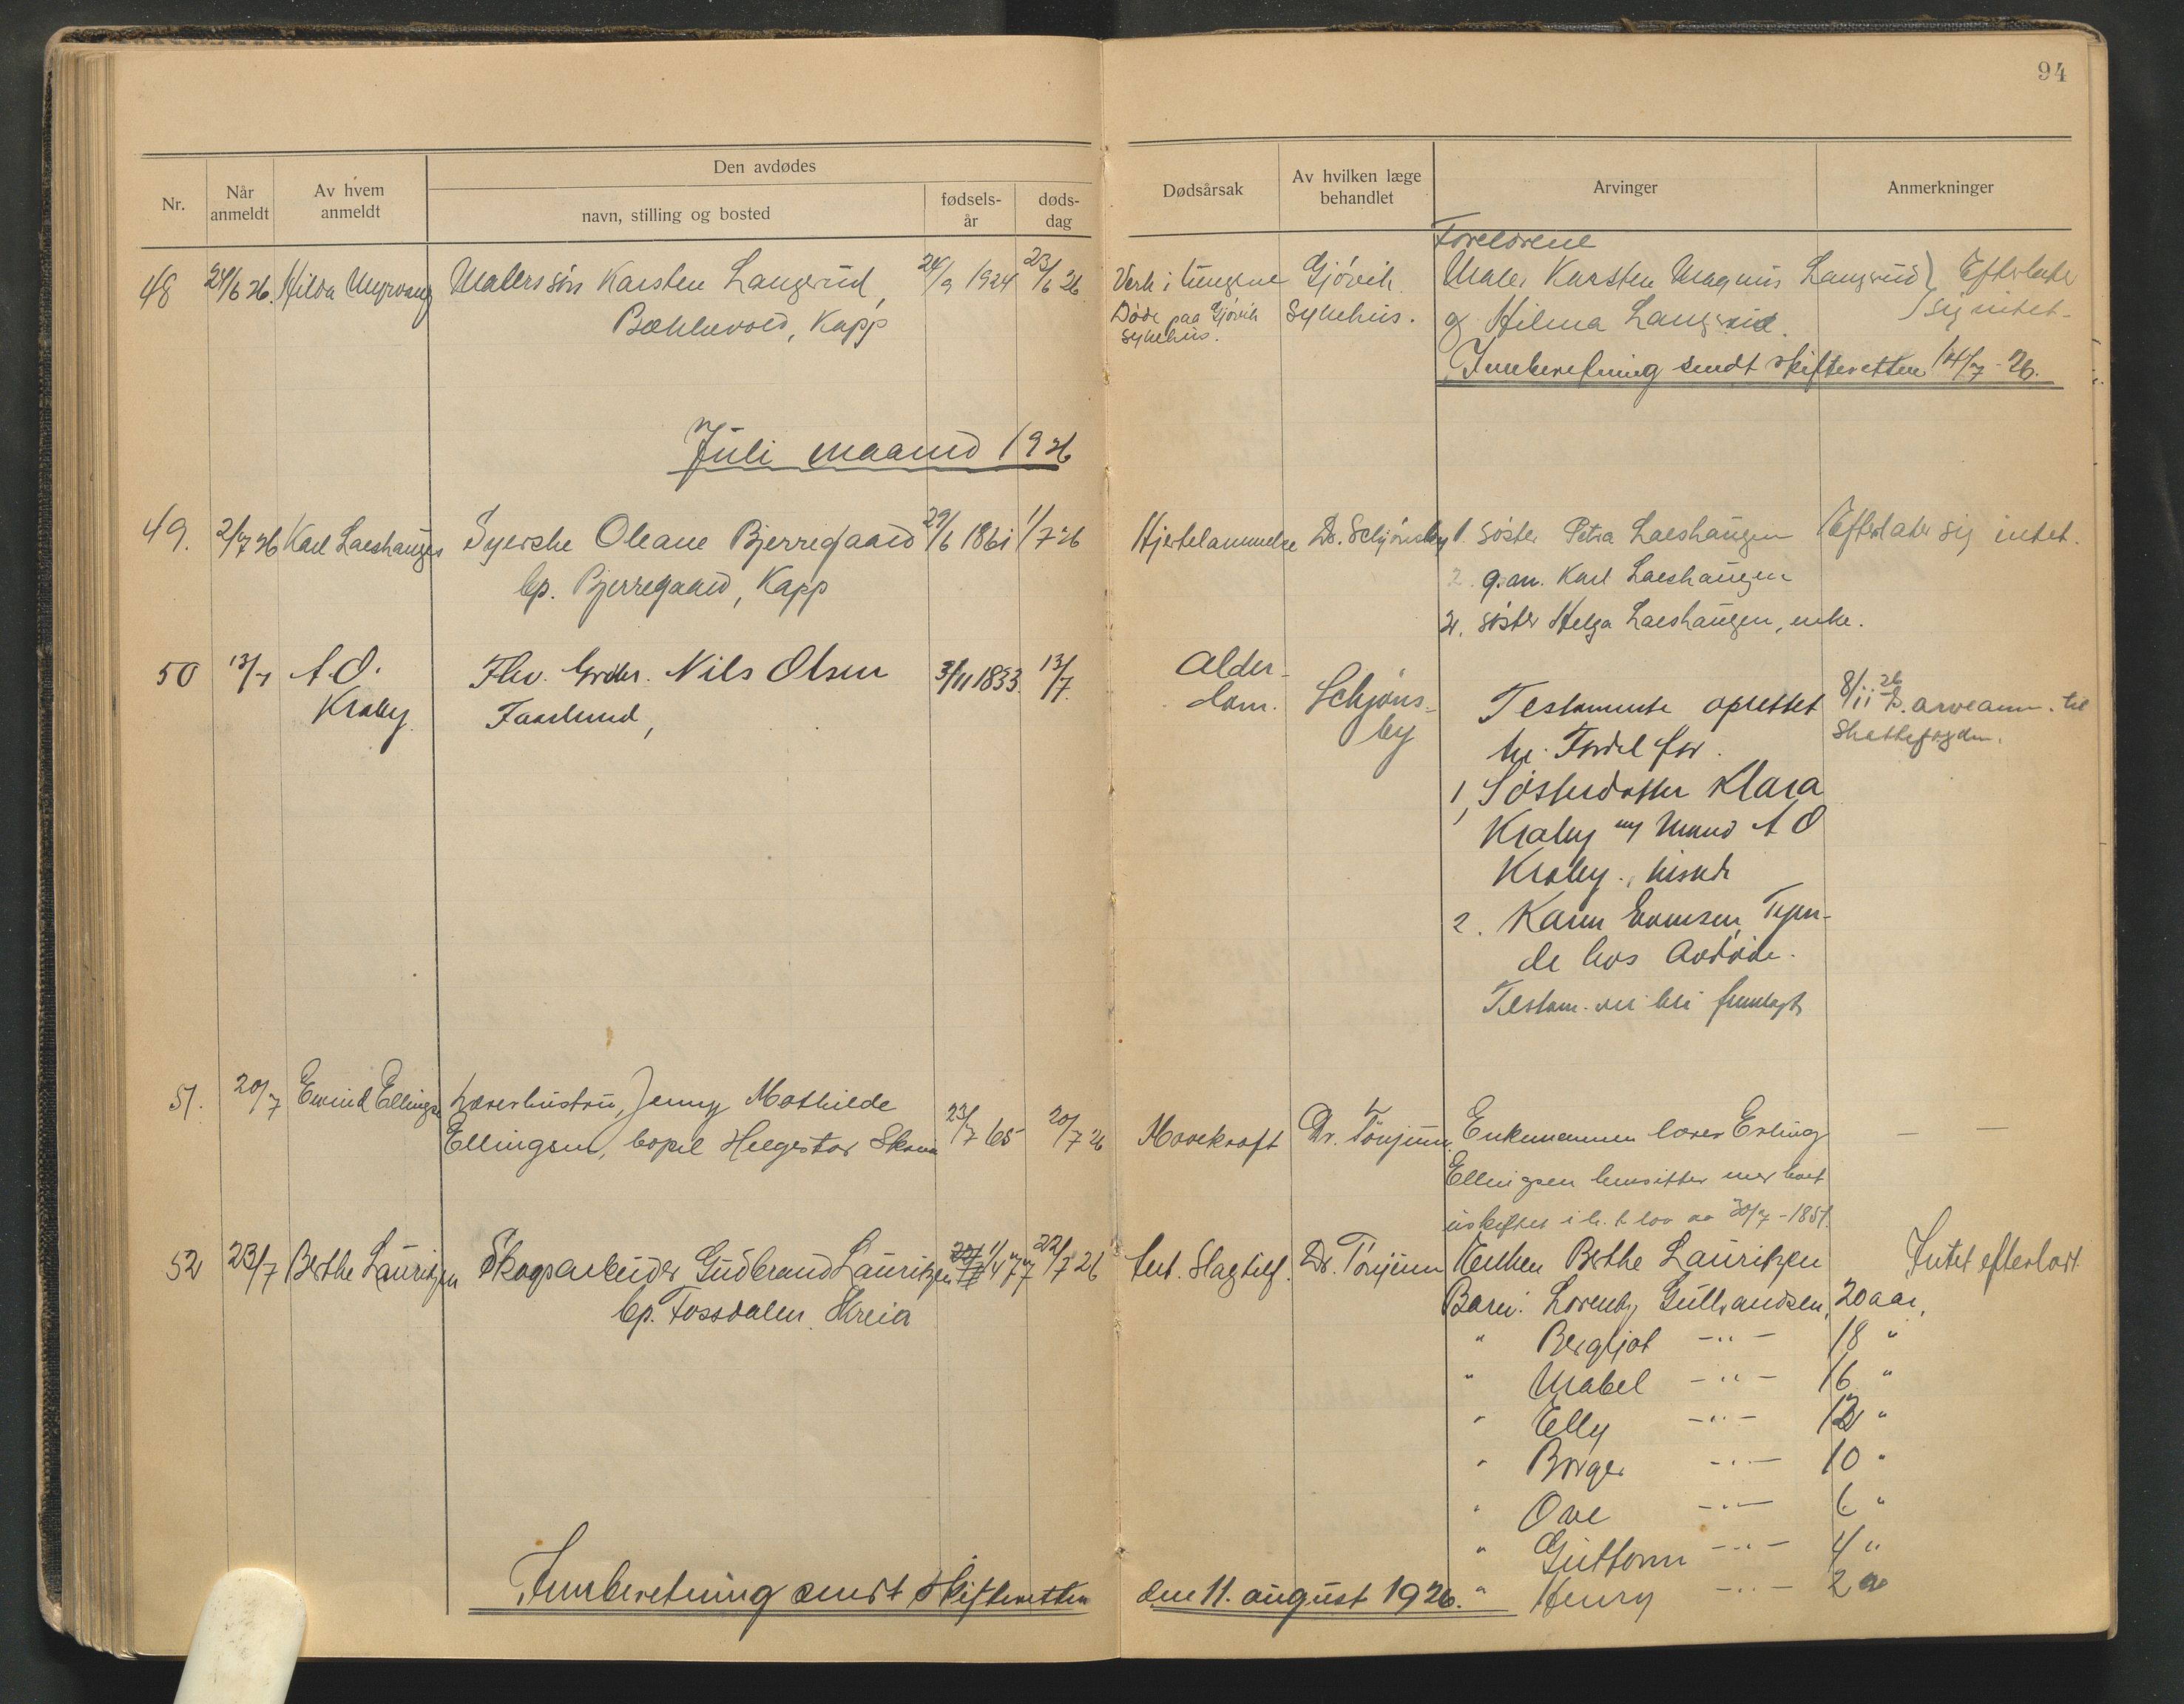 94
Nr.
Når anmeldt
Av hvem anmeldt
Den avdødes
navn, stilling og bosted
fødsels-år
døds-dag
Dødsårsak
Av hvilken læge behandlet
Arvinger
Anmerkninger
Foreldrene
48 24/6 26. Hilda Myrvang Malerssön Karsten Langerud, 24/9 1924 23/6 26 Verk i lungene Gjövik Maler Karsten Magnus Langerud) Efterlater
Kapp Döde paa Gjövik Sykehus. og Hilma Langerud. sig intet.
sykehus.
Innberetning sendt skifteretten 14/7-26.
Juli maaned 1926
49. 2/7 26 Karl Laeshaugen Syerske Oleane Bjerregaard 29/6 1861 1/7 26 Hjertelammelse Dr. Schjönsby 1. söster Petra Laeshaugen Efterlater sig intet.
bp. Bjerregaard, Kapp 2. g.m. Karl Laeshaugen
2. söster Helga Laeshaugen, enke.
50 13/7 A.O. Fhv. Grdbr. Nils Olsen 3/11 1833. 13/7. Alder-
Kraby Faarlund, dom. Schjöns-
by
Testamente oprettet 8/11 26 arveanm. til
til Fordel for Skattefogden.
1, Sösterdatter Klara
Kraby m/ Mand A O
Kraby.
2. Karen Evensen, Tjen-
de hos Avdöde.
Testam. vil bli fremlagt
51. 20/7 Eivind Ellingsen Lærerhustru, Jenny Mathilde
Ellingsen, bopel Helgestar Skreia 23/7 65 20/7 26 Marekraft Dr. Tönjum. Enkemannen lærer Erling — —
Ellingsen hensitter med boet
uskiftet i h. t. lov av 30/7-1851.
52 23/7 Berthe Lauritzen Skogsarbeider Gudbrand Lauritzen 1/4 77 22/7 26 Slagtilf. Dr. Tönjum Enken Berthe Lauritzen Intet efterladt
bp. Fossdalen, Skreia Barn: Lorentz Gulbrandsen, 20 aar,
" Bergljot -"- 18 "
" Mabel -"- 16 "
" Elly -"- 12 "
" Borger -"- 10 "
" Ove -"- 6 "
" Guttorm -"- 4 "
" Henry -"- 2 "
Innberetning sendt skifteretten den 11. august 1926.